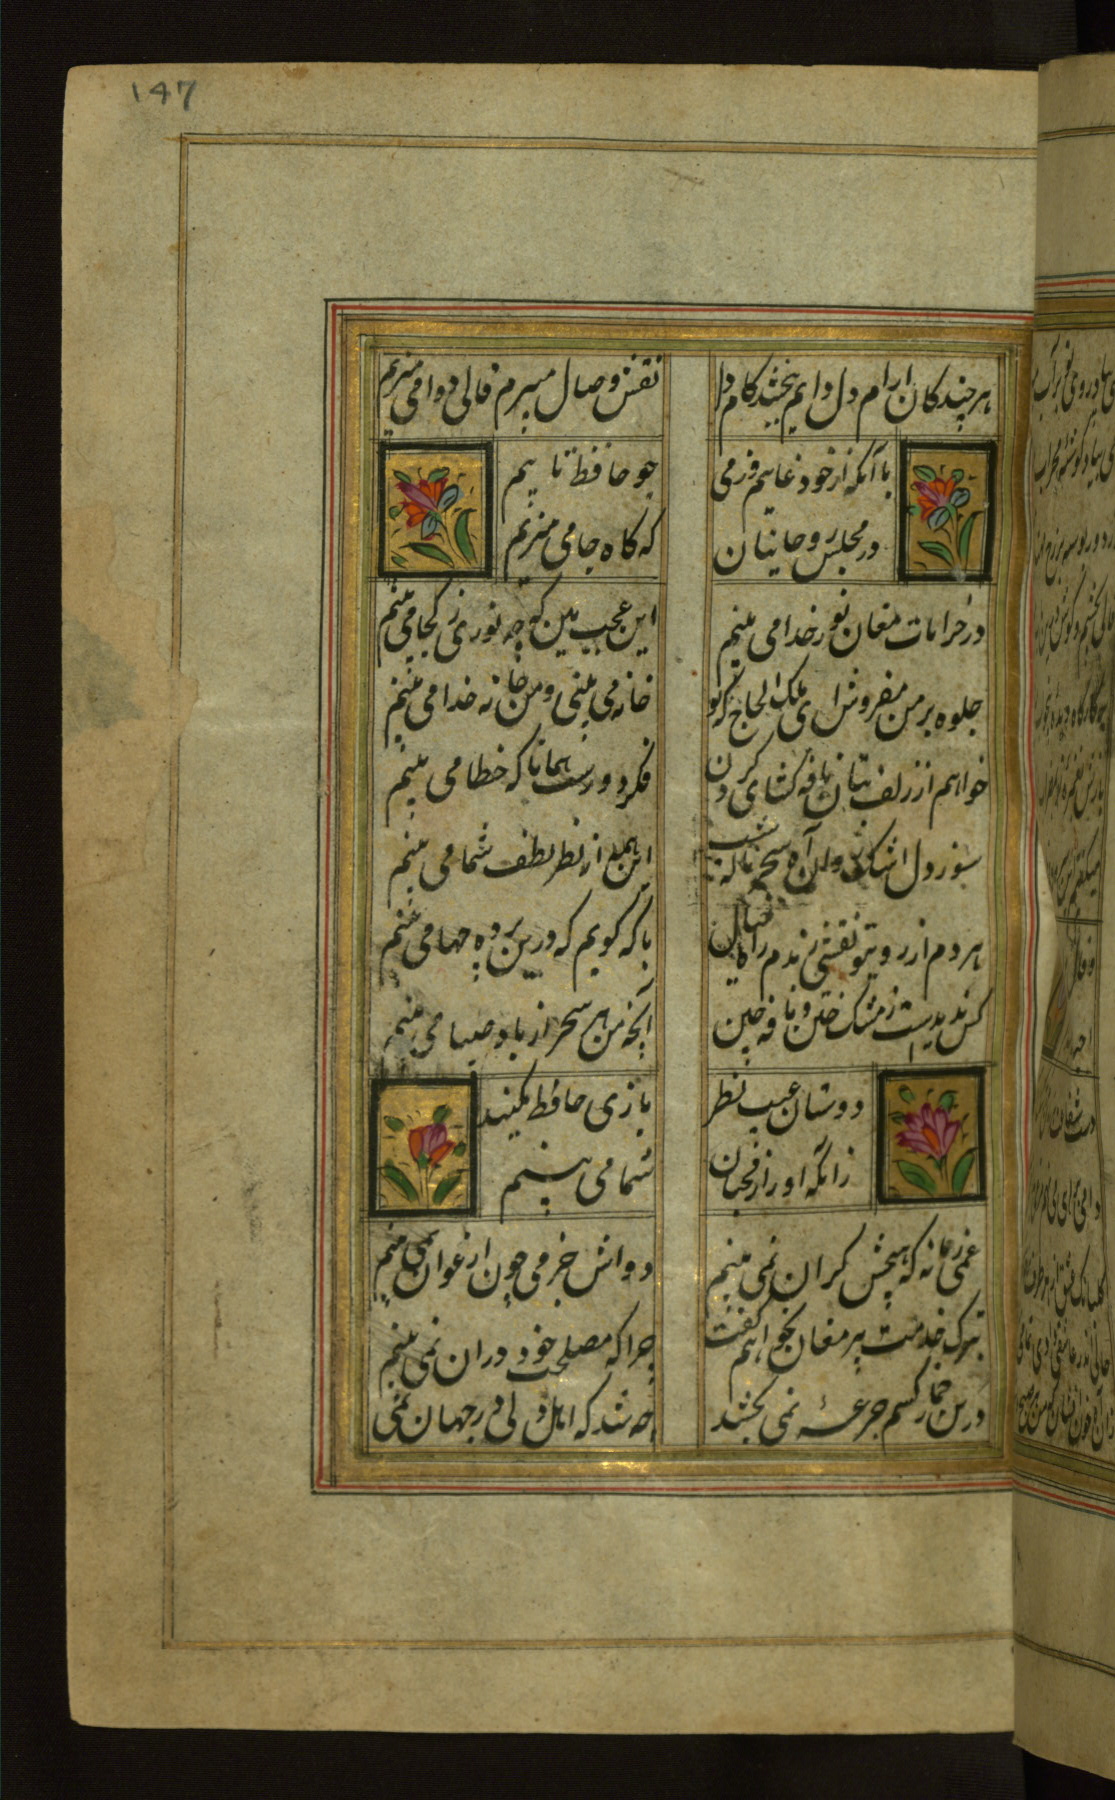 147
هر چند کان ارام دل دایم نبخشد کام دل
نقش وصال میبرم فالی دوامی میزنم
با آنکه از خود غایبم وز می
چو حافظ تایبم
در مجلس روحانیان
که کاه جامی میزنم
در خرابات مغان نور خدا می بینم
این عجب بین که چه نوری ز کجا می بینم
جلوه بر من مفروش ای ملک الحاج که تو
خانه می بینی و من خانه خدا می بینم
خواهم از زلف بتان نافه کشای کردن
فکر دورست همانا که خطا می بینم
سوز دل اشک روان آه سحر ناله شب
این همه از نظر لطف شما می بینم
هر دم از روی تو نقشی زندم راه خیال
با که کویم که درین پرده چها می بینم
کس ندیدست ز مشک ختن و نافه چین
آنچه من هر سحر از باد صبا می بینم
دوستان عیب نظر
بازی حافظ مکنید
زانکه او را ز محبان
شما می بینم
غم زمانه که هیچش کران نمی بینم
دواش جز می چون ارغوان نمی بینم
بترک خدمت پیر مغان نخواهم گفت
چرا که مصلحت خود در آن نمی بینم
درین خمار کسم جرعه نمی بخشد
چه شد که اهل دلی در جهان نمی